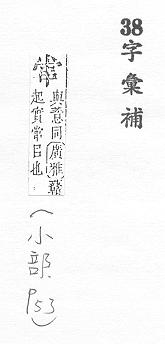 38字彙補
與同廣雅
起實常日也
(小部
P53)